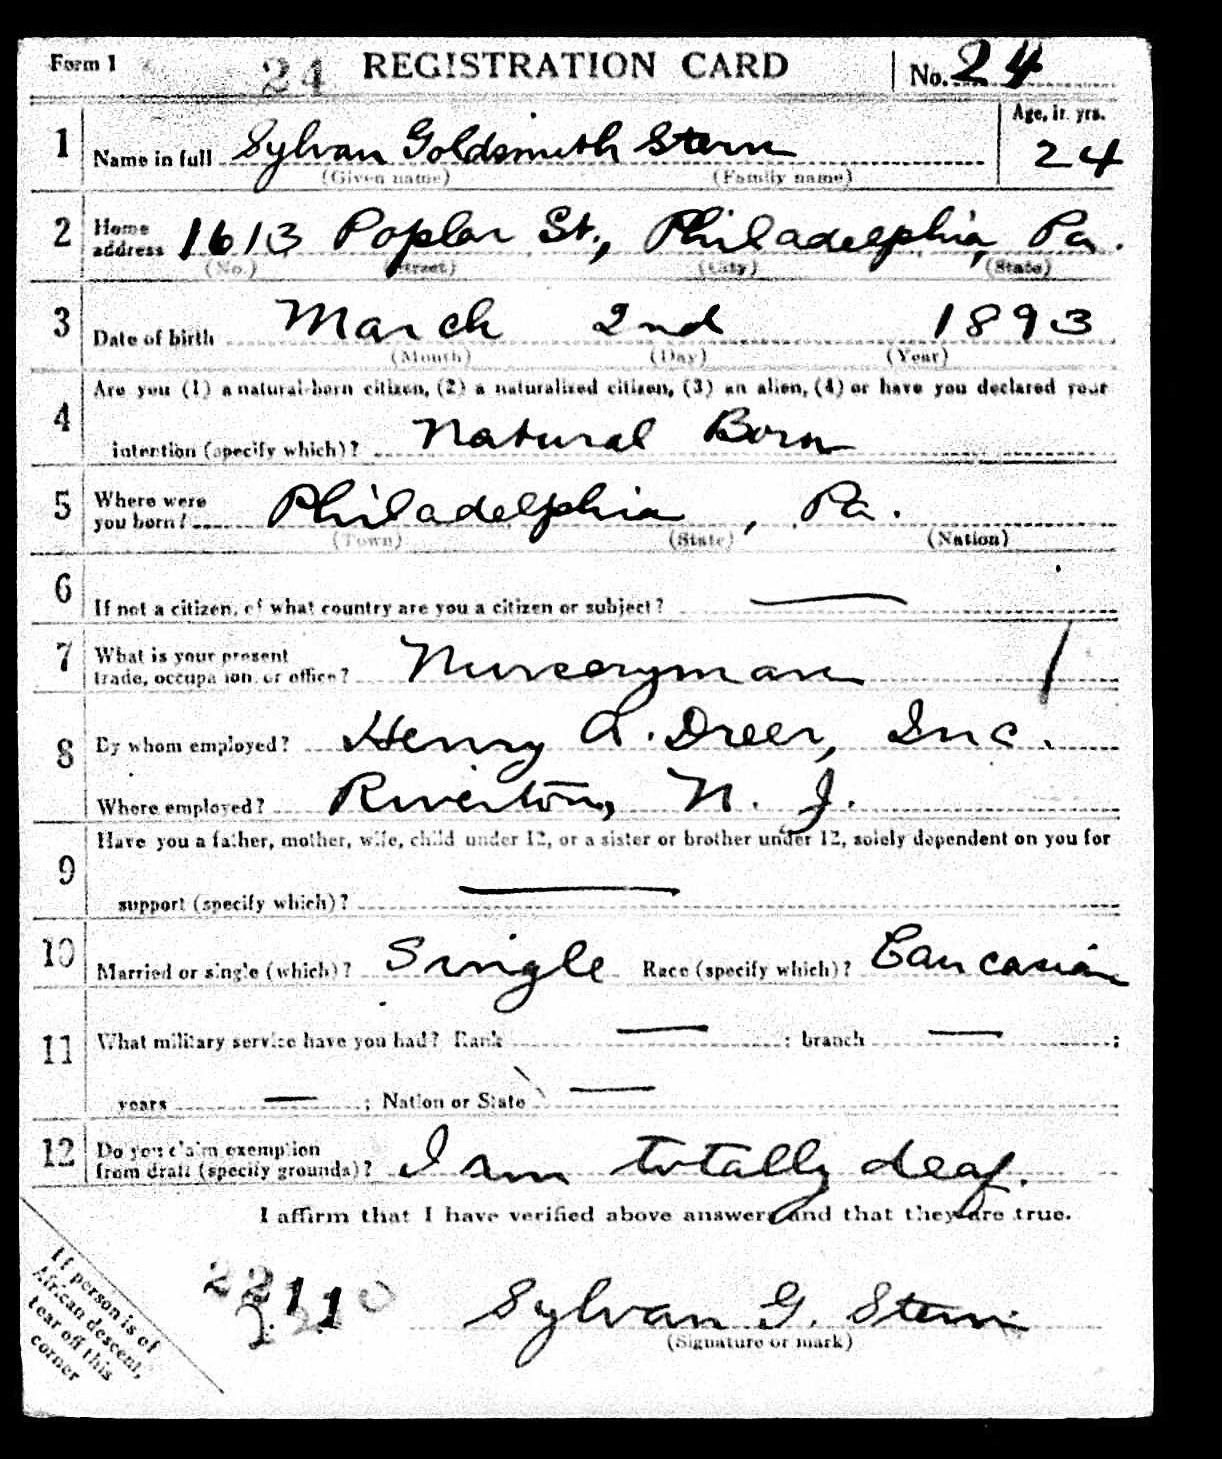 Form 1 24 REGISTRATION CARD No. 24
1 Name in full Sylvan Goldsmith Stern Age, in yrs. 24
(Given name) (Family name)
2 Home address 1613 Poplar St., Philadelphia, Pa.
(No.) (Street) (City) (State)
3 Date of birth March 2nd 1893
(Month) (Day) (Year)
4 Are you (1) a natural-born citizen, (2) a naturalized citizen, (3) an alien, (4) or have you declared your
intention (specify which)? Natural Born
5 Where were you born? Philadelphia, Pa.
(Town) (State) (Nation)
6 If not a citizen, of what country are you a citizen or subject? —
7 What is your present trade, occupation, or office? Nurseryman
8 By whom employed? Henry A. Dreer, Inc.
Where employed? Riverton, N. J.
9 Have you a father, mother, wife, child under 12, or a sister or brother under 12, solely dependent on you for
support (specify which)? —
10 Married or single (which)? Single Race (specify which)? Caucasian
11 What military service have you had? Rank — ; branch — ;
years — ; Nation or State —
12 Do you claim exemption from draft (specify grounds)? I am totally deaf.
I affirm that I have verified above answers and that they are true.
Sylvan G. Stern
(Signature or mark)
If person is of
African descent,
tear off this
corner